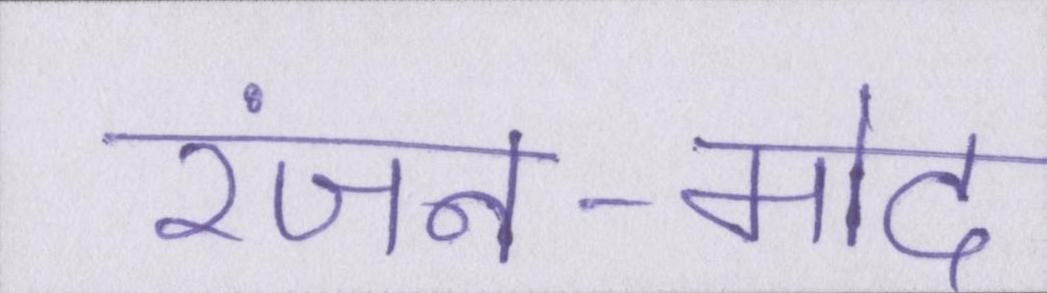 रंजन-मोद